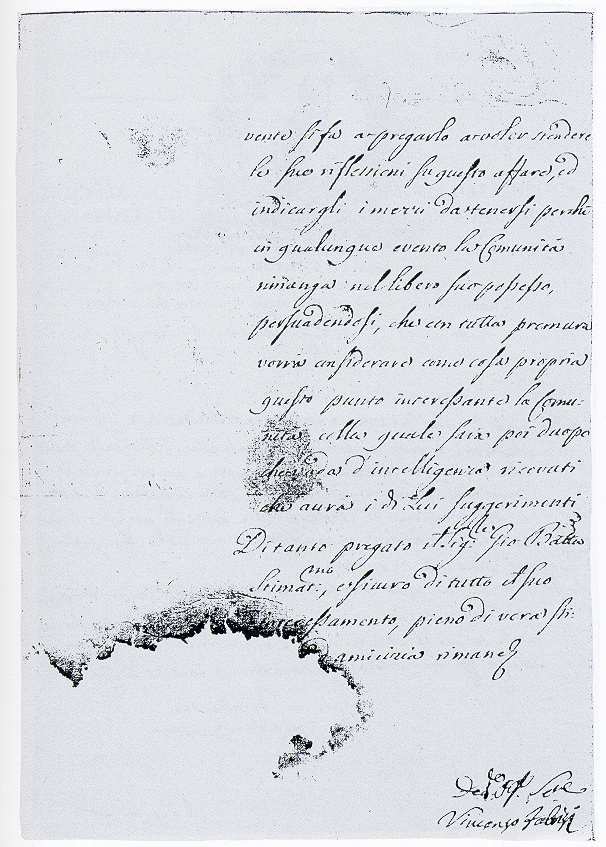 vente si fa a pregarlo a voler stendere
le sue riflessioni su questo affare, ed
indicargli i mezzi da tenersi perchè
in qualunque evento la Comunità
rimanga nel libero suo possesso,
persuadendosi, che con tutta premura
vorrà considerare come cosa propria
questo punto interessante la Comu-
nità colla quale sarà poi duopo
che vada d'intelligenza ricevuti
che avrà i di Lui suggerimenti
Di tanto pregato il Sig.r Gio Batta
Stimat.mo, e sicuro di tutto il suo
interessamento, pieno di vera sti-
d'amicizia rimane
Vincenzo